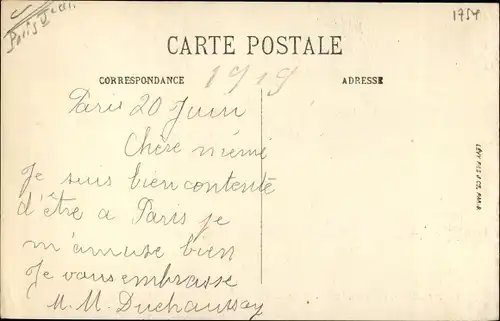 Paris
1754
CARTE POSTALE
1919
CORRESPONDANCE
ADRESSE
Paris 20 Juin
Chère mémé
Je suis bien contente
d'être a Paris je
m'amuse bien
Je vous embrasse
M. M. Duchaussoy